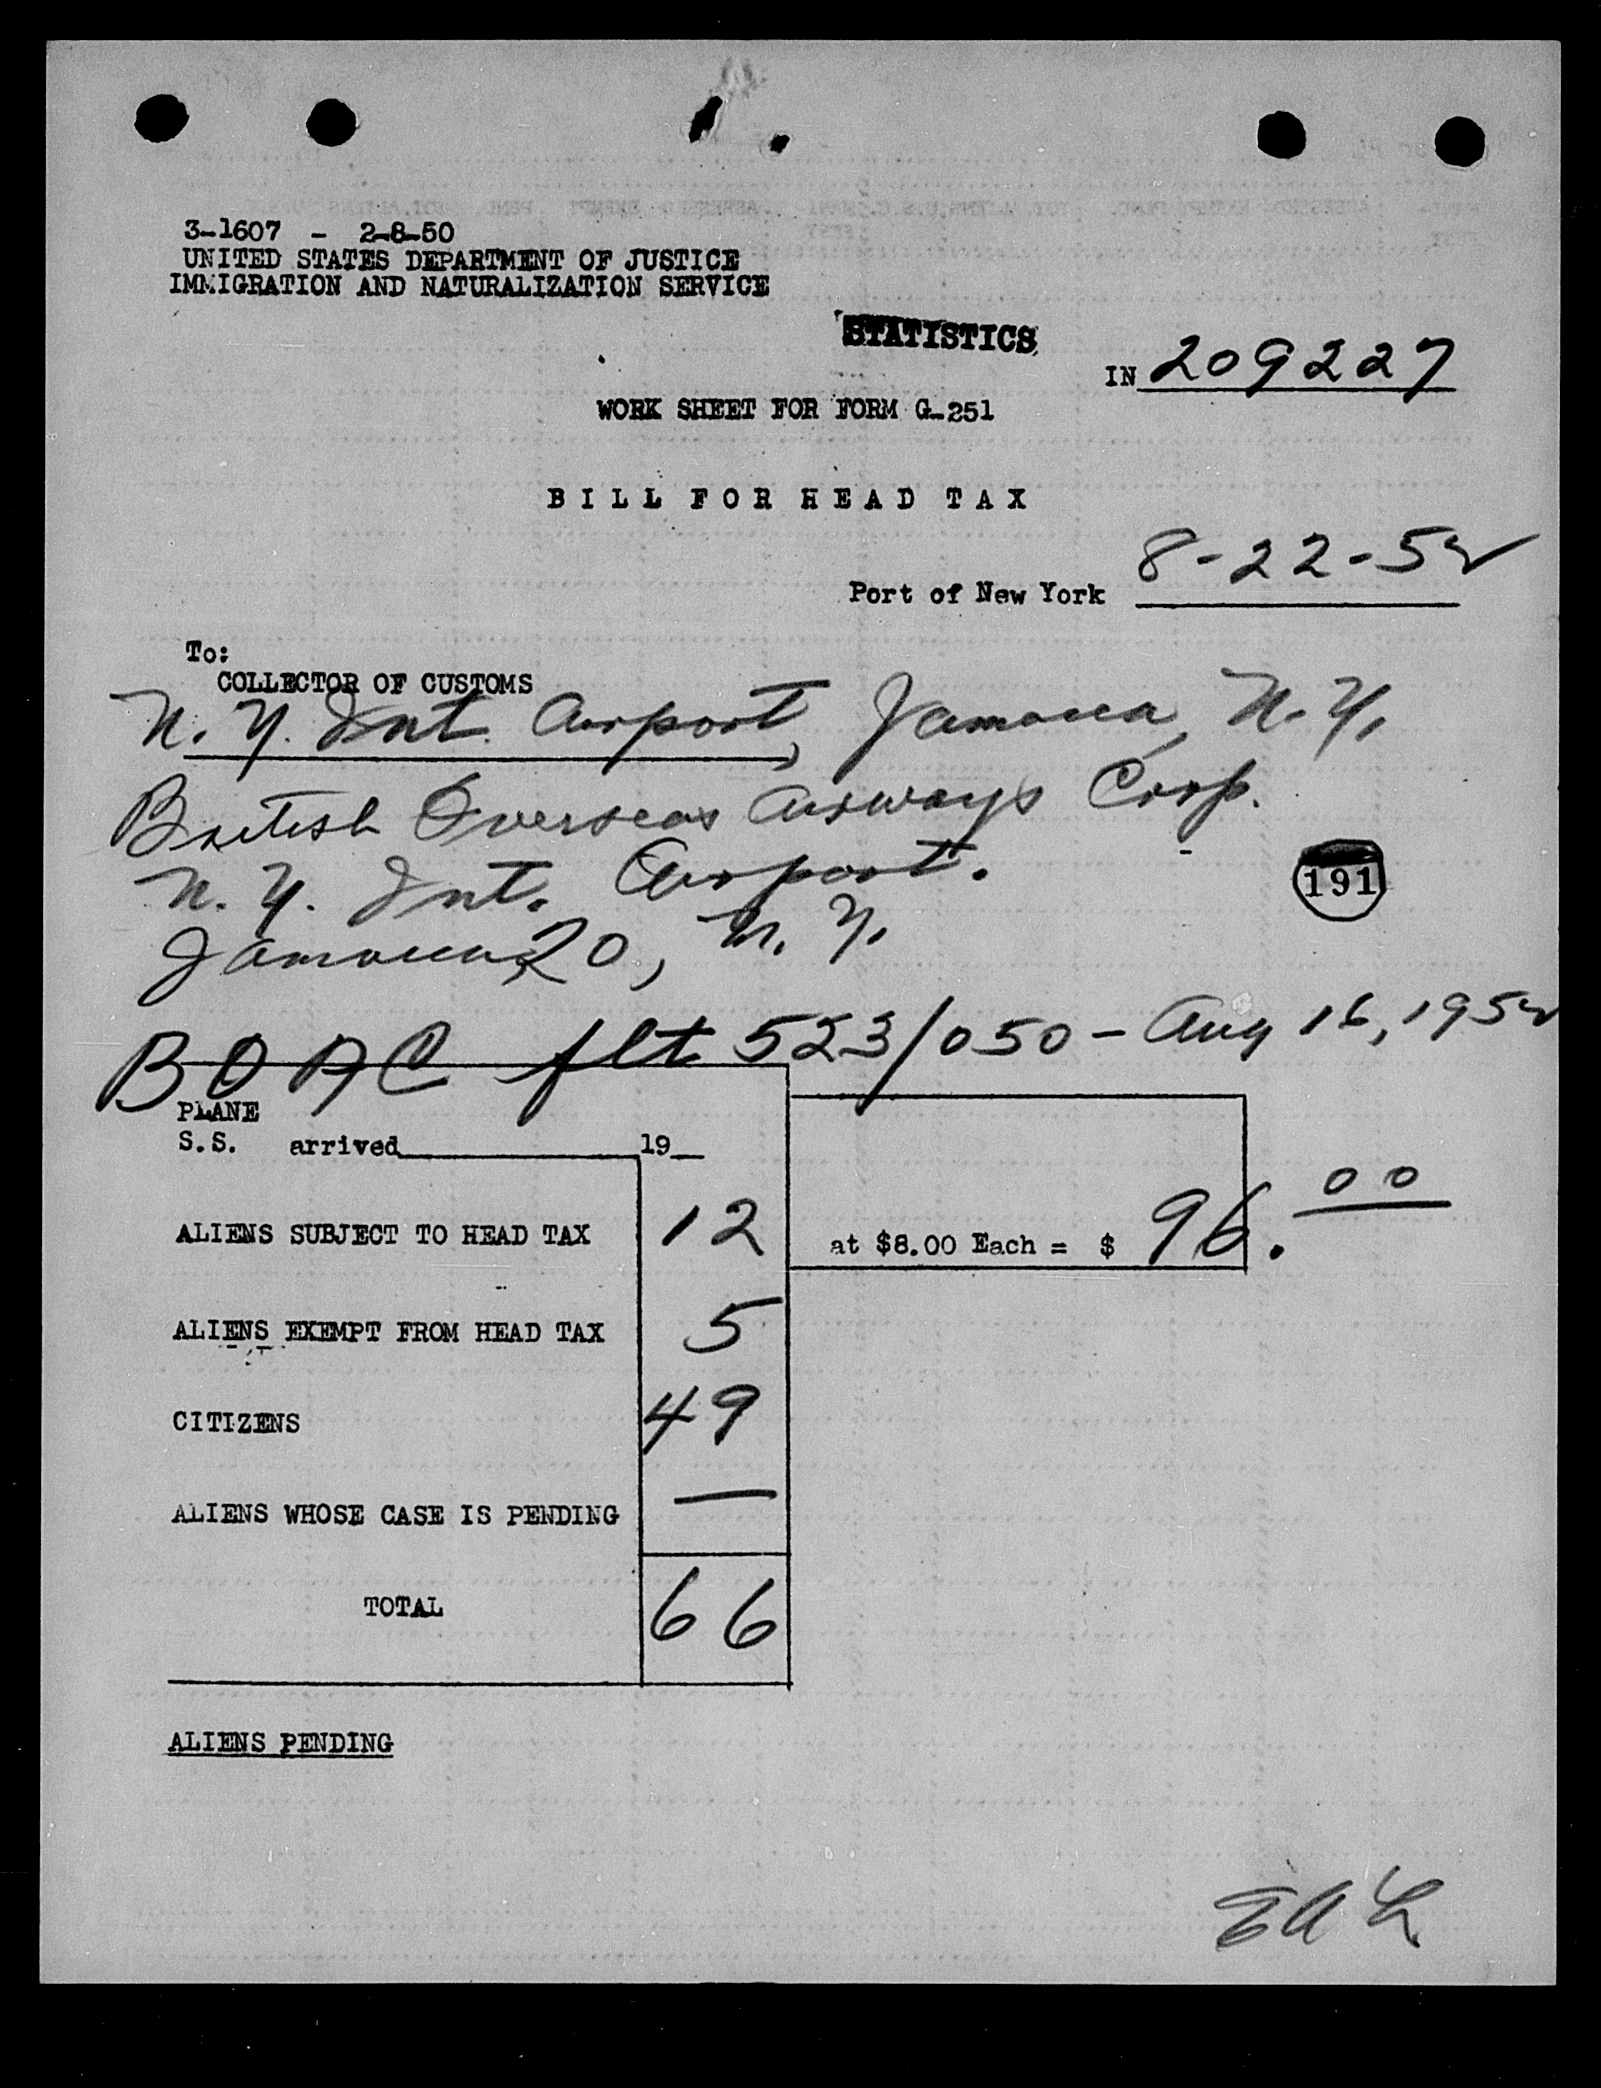 3-1607 - 2-8-50
UNITED STATES DEPARTMENT OF JUSTICE
IMMIGRATION AND NATURALIZATION SERVICE
STATISTICS
IN 209227
WORK SHEET FOR FORM G-251
BILL FOR HEAD TAX
8-22-52
Port of New York
To:
COLLECTOR OF CUSTOMS
N.Y. Int. Airport, Jamaica, N.Y.
British Overseas Airways Corp.
N.Y. Int. Airport.
191
Jamaica 20, N.Y.
BOAC flt 523/050 - Aug 16, 1952
PLANE
S.S. arrived 19
ALIENS SUBJECT TO HEAD TAX 12 at $8.00 Each = $ 96.00
ALIENS EXEMPT FROM HEAD TAX 5
CITIZENS 49
ALIENS WHOSE CASE IS PENDING —
TOTAL 66
ALIENS PENDING